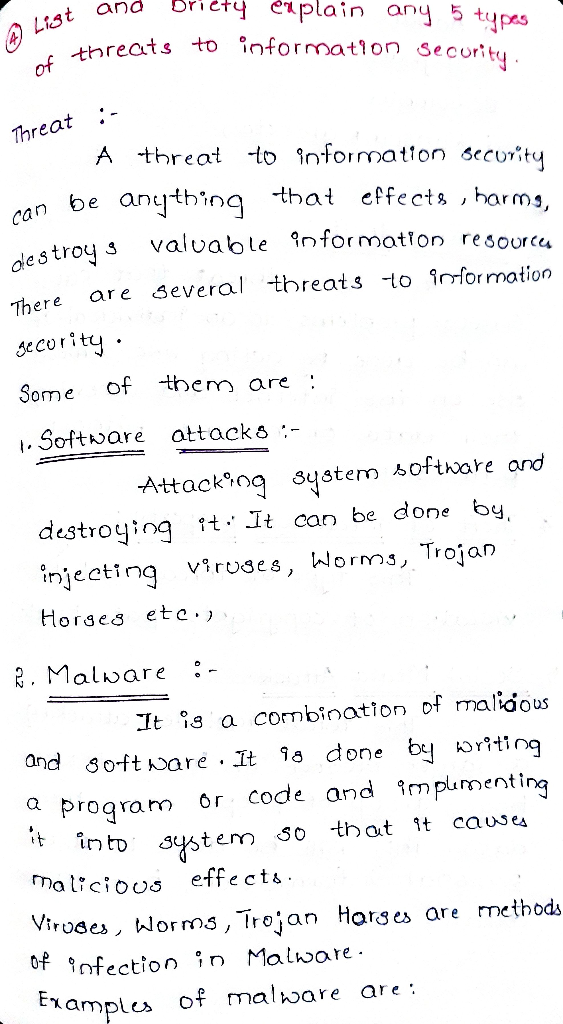 4 List and briefly explain any 5 types
of threats to information security.
Threat :-
A threat to information security
can be anything that effects, harms,
destroys valuable information resources
There are several threats to information
security.
Some of them are :
1. Software attacks :-
Attacking system software and
destroying it. It can be done by,
injecting viruses, Worms, Trojan
Horses etc.,
2. Malware :-
It is a combination of malicious
and software. It is done by writing
a program or code and implementing
it into system so that it causes
malicious effects.
Viruses, Worms, Trojan Horses are methods
of infection in Malware.
Examples of malware are: